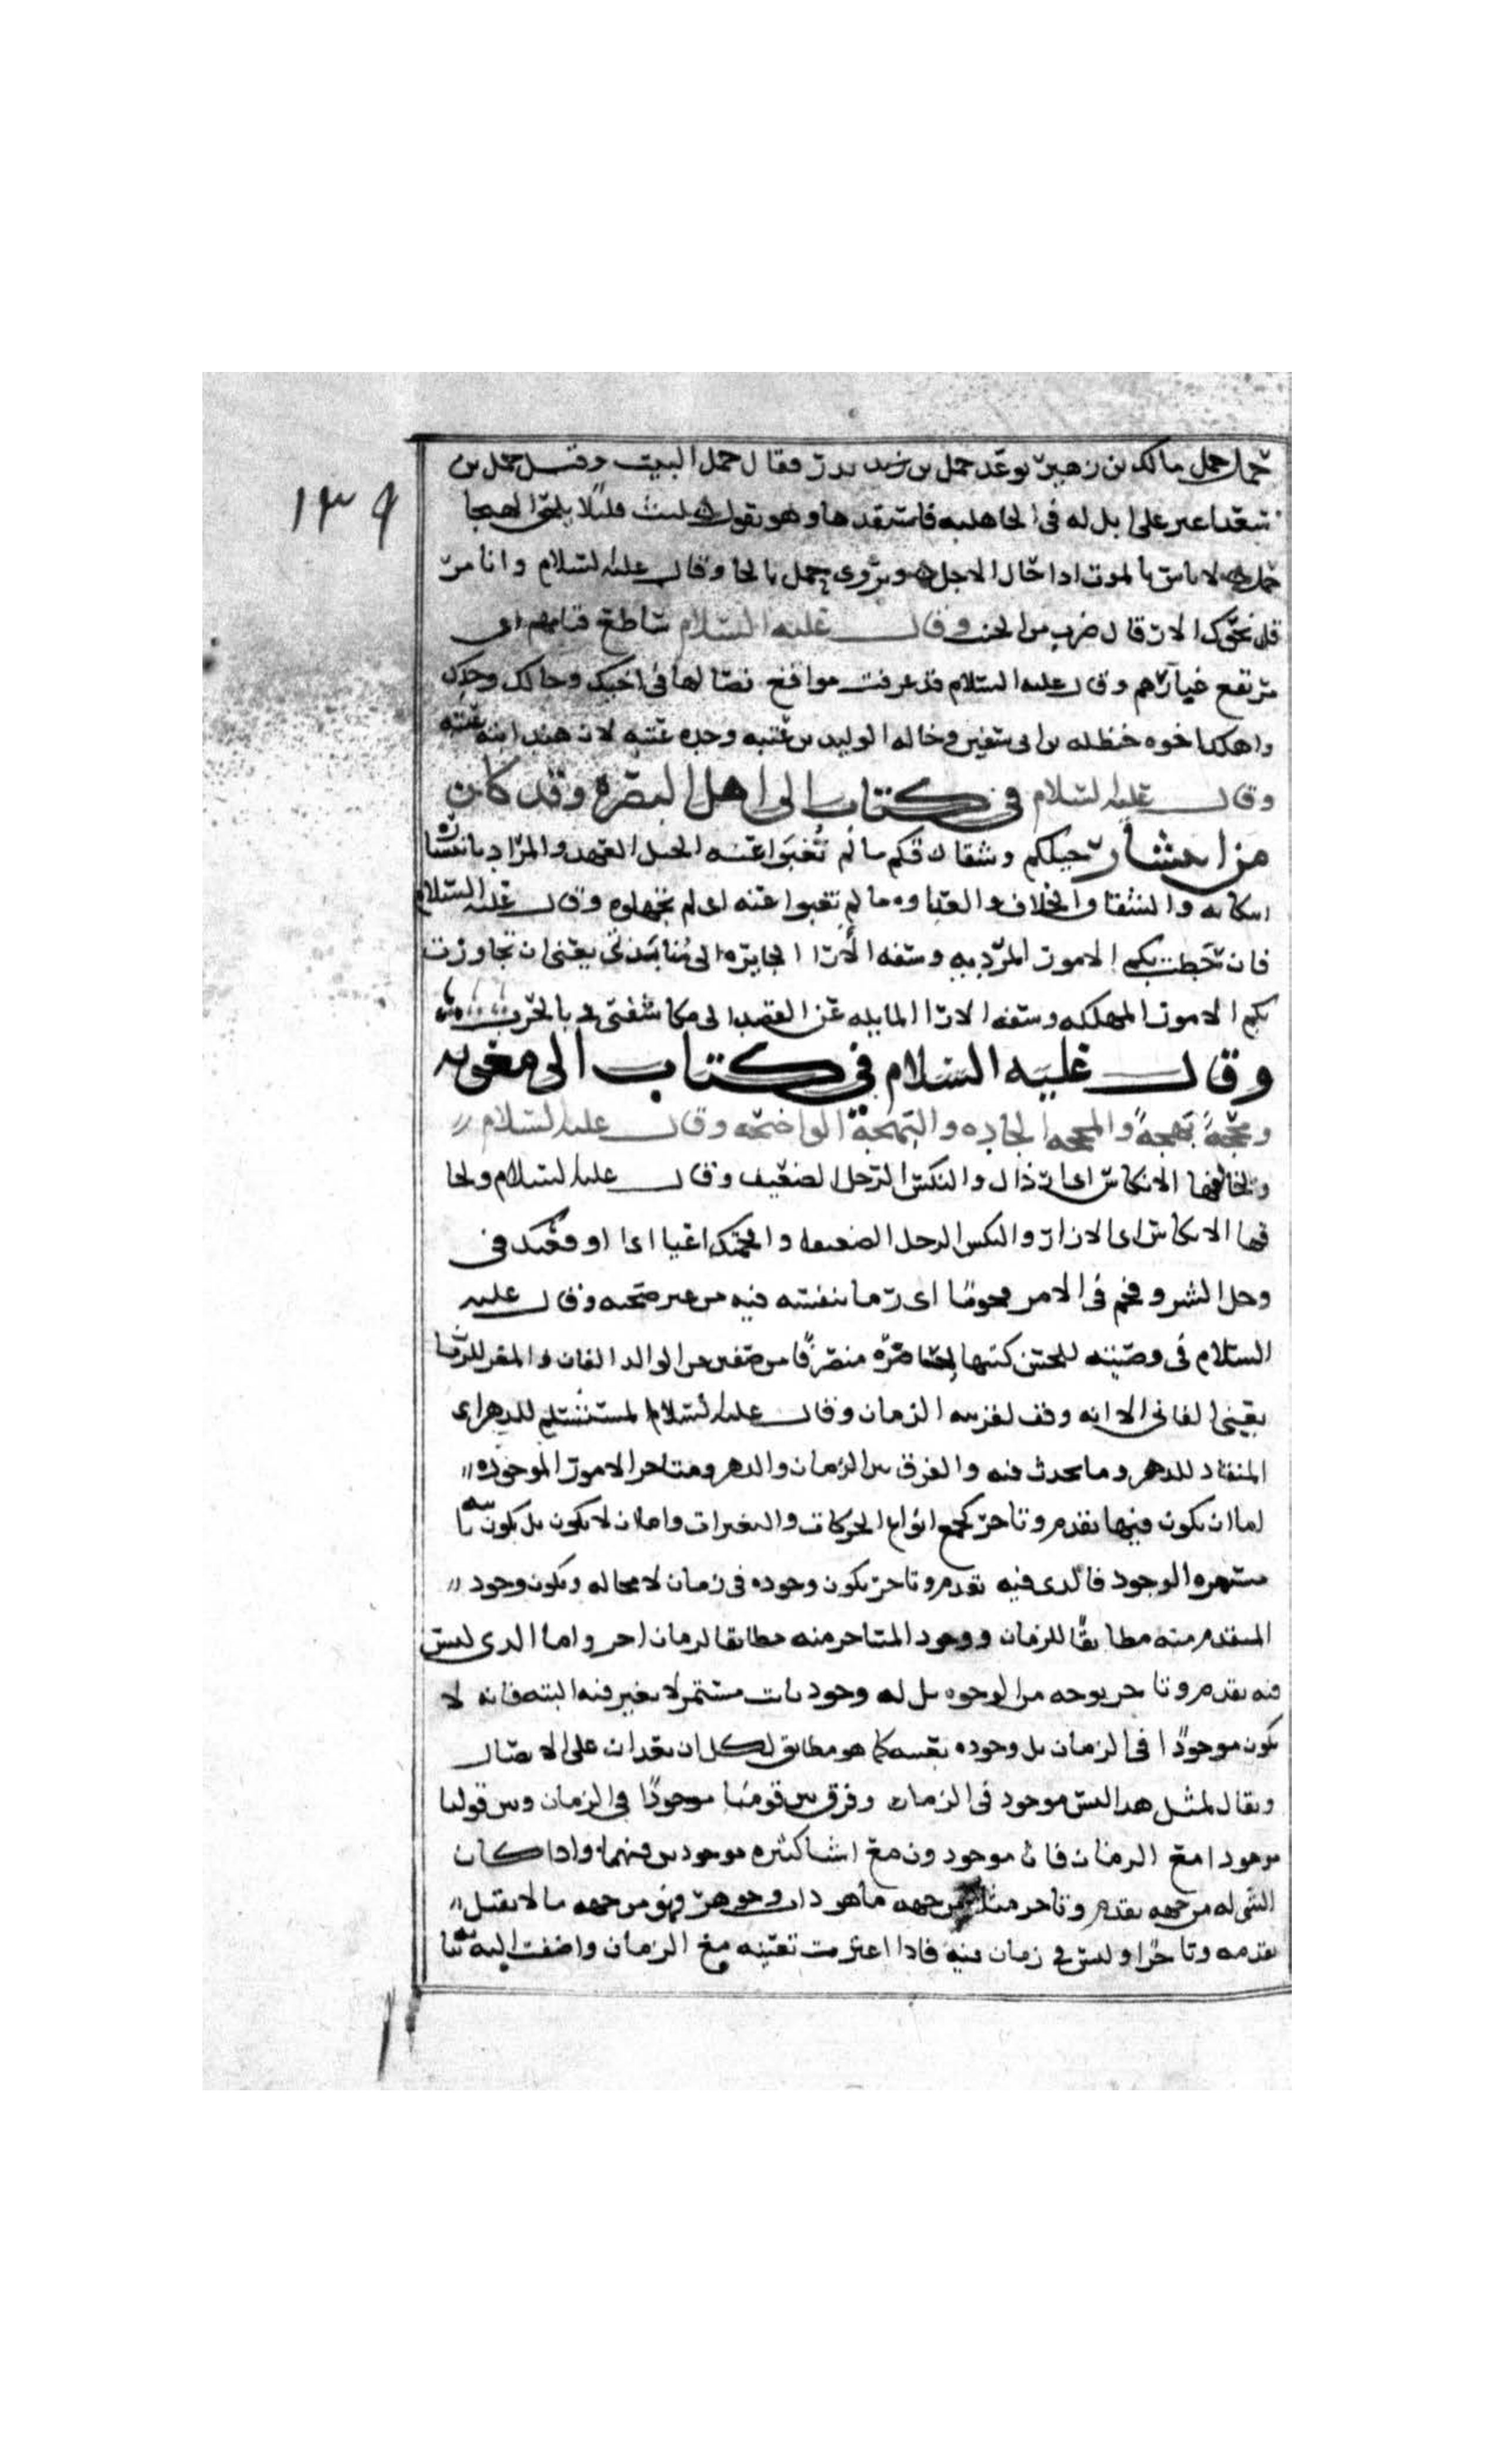 حمل حمل مالك بن زهير توعد حمل بن بدر فقال حمل البيت وقيل حمل بن
١٣٩
سعد اعير على ابل له في الجاهلية فاستنقدها وهو يقول لبث قليلا يلحق الهيجا
حمل لا باس بالموت اذا حان الاجل ويروى حمل بالحا وقال عليه السلام وانا مر
قل نحيك الار قال ضرب من وقال عليه السلام ساطع قتامهم اى
مرتفع غبارهم وقال عليه السلام قد عرفت مواقع نصالها في اخيك وخالك وجدك
واهلك اخوه حنظله بن ابى سفين وخاله الوليد بن عتبه وجده عتبه لان هندا ابنه عتبه
وقال عليه السلام في كتاب الى اهل البصره وقد كان
من انتشار حبلكم وشقاقكم ما لم تغبوا عنه الحبل العهد والمراد بانتشاره
انتكاثه والشقاق الخلاف وما لم تغبوا عنه اى لم تجهلوه وقال عليه السلام
فان خطت بكم الامور المرديه وسفه الارا الجايره الى منابذتى يعنى ان تجاوزت
بكم الامور المهلكه وسفه الارا المايله عن القصد الى مكاشفتى بالحرب
وقال عليه السلام في كتاب الى معويه
ومحجة نهجة والمحجه الجاده والنهجة الواضحه وقال عليه السلام
ويخالفها الانكاس اى الارذال والنكس الرجل الضعيف وقال عليه السلام ولحا
فيها الانكاس اى الارذال والنكس الرجل الضعيف و اى اوقعتك في
وحل الشر وقحم في الامر قحوما اى رما بنفسه فيه من غير وقال عليه
السلام في وصيته للحسن كتبها بحاضره منصرفا من صفين من الوالد الفان المقر للزمان
يعنى الفانى الا انه وقف لقرينه الزمان وقال عليه السلام المستسلم للدهر اى
المنقاد للدهر وما يحدث فيه والفرق بين الزمان والدهر الامور الموجوده
اما ان تكون فيها تقدم وتاخر كجميع انواع الحركات والتغيرات واما ان لا تكون بل تكون ثابته
مستمره الوجود فالذى فيه تقدم وتاخر يكون وجوده في زمان لا محاله ويكون وجود
المتقدم منه مطابقا للزمان ووجود المتاخر منه مطابقا لزمان اخر واما الذى ليس
فيه تقدم وتاخر بوجه من الوجوه بل له وجود ثابت مستمر لا يغير فيه البته فانه لا
يكون موجودا في الزمان بل وجوده بنفسه كما هو مطابق لكل ان بعد ان على الاتصال
ويقال لمثل هذا ليس موجود في الزمان وفرق بين قولنا موجودا في الزمان وبين قولنا
موجودا مع الزمان فان موجودون مع اشيا كثيره موجودين فيهما واذا كان
الشى له من جهه تقدم وتاخر مثلا من جهه ما هو ذات وجوهر وهو من جهه ما لا يقبل
تقدمه وتاخرا وليس في زمان فاذا اعتبرت تعينه مع الزمان واضفت اليه ثباته